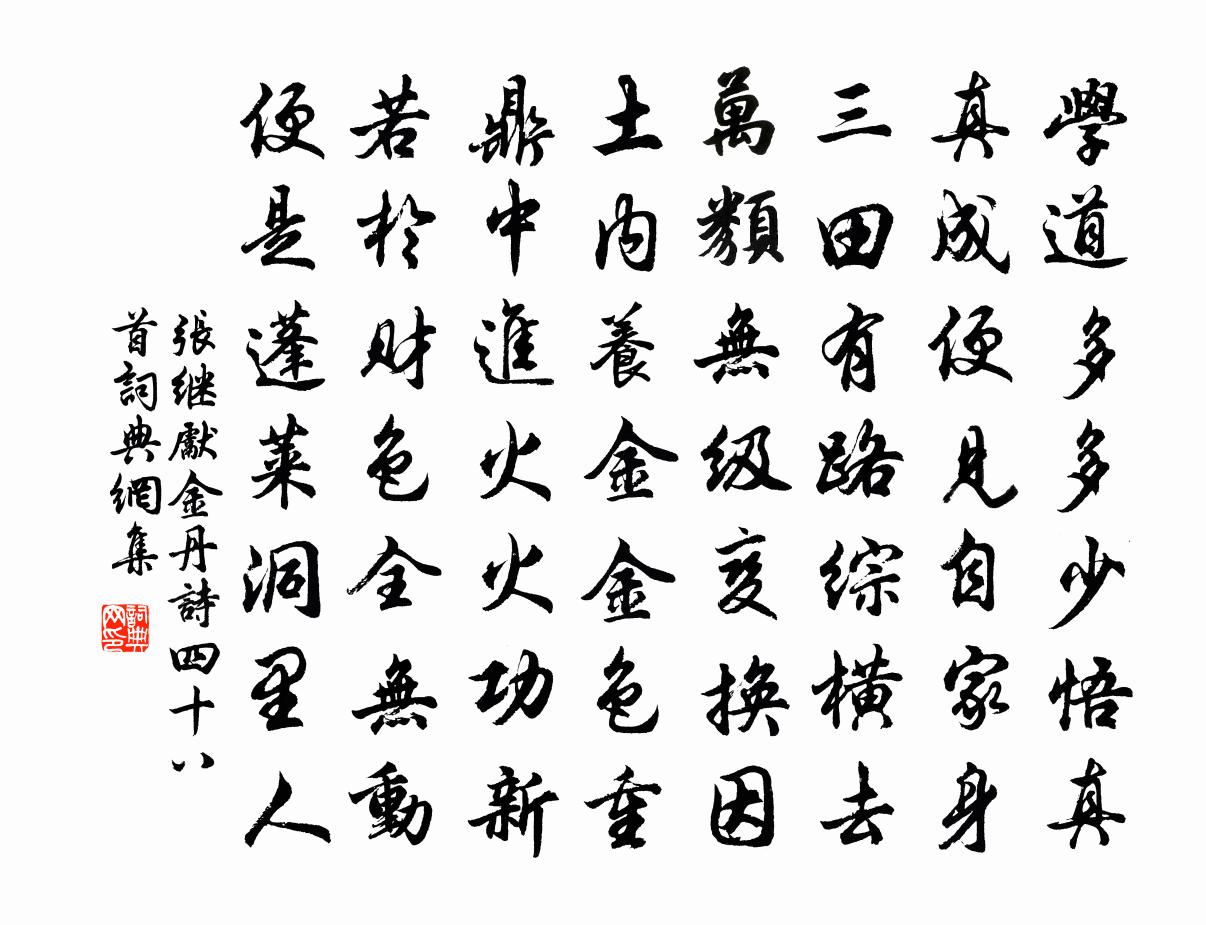 學道多多少悟真
真成便見自家身
三田有路綜橫去
萬類無級变換因
土内養金金色重
鼎中進火火功新
若於财色全無動
便是蓬萊洞里人
張继獻金丹詩四十八
首詞典網集
詞典
网印